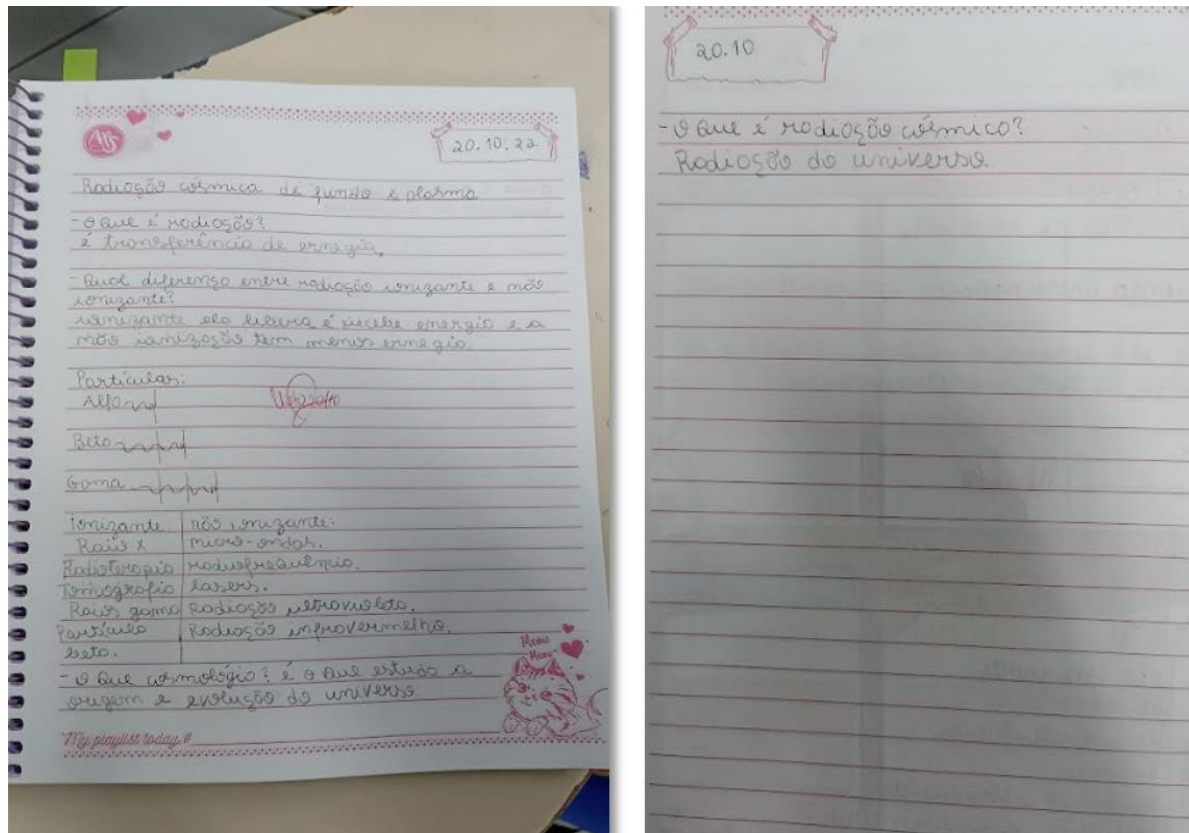 20.10.22
Radiação cósmica de fundo e plasma
- O que é radiação?
é transferência de ernegia,
- Qual diferença entre radiação ionizante e não
ionizante?
ionizante ela libera é recebe energia e a
não ionização tem menos ernegia.
Particular:
Alfa
Beta
Gama
ionizante não ionizante:
Raios X micro-ondas.
Radioterapia radiofrequência.
Tomografia lasers.
Raios gama Radiação ultravioleta.
Partícula Radiação infravermelho.
beta.
- O que cósmológia? é o que estuda a
origem e evolução do universo
Meow
Meow
My playlist today #
20.10
- O que é radiação cósmica?
Radiação do universo.